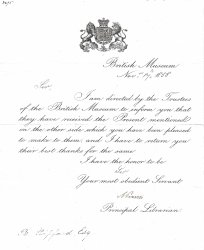 British Museum
Nov. 19, 1858
Sir,
I am directed by the Trustees
of the British Museum to inform you that
they have received the Present mentioned
in the other side which you have been pleased
to make to them; and I have to return you
their best thanks for the same.
I have the honor to be
Sir
Your most obedient Servant
Principal Librarian
Esq